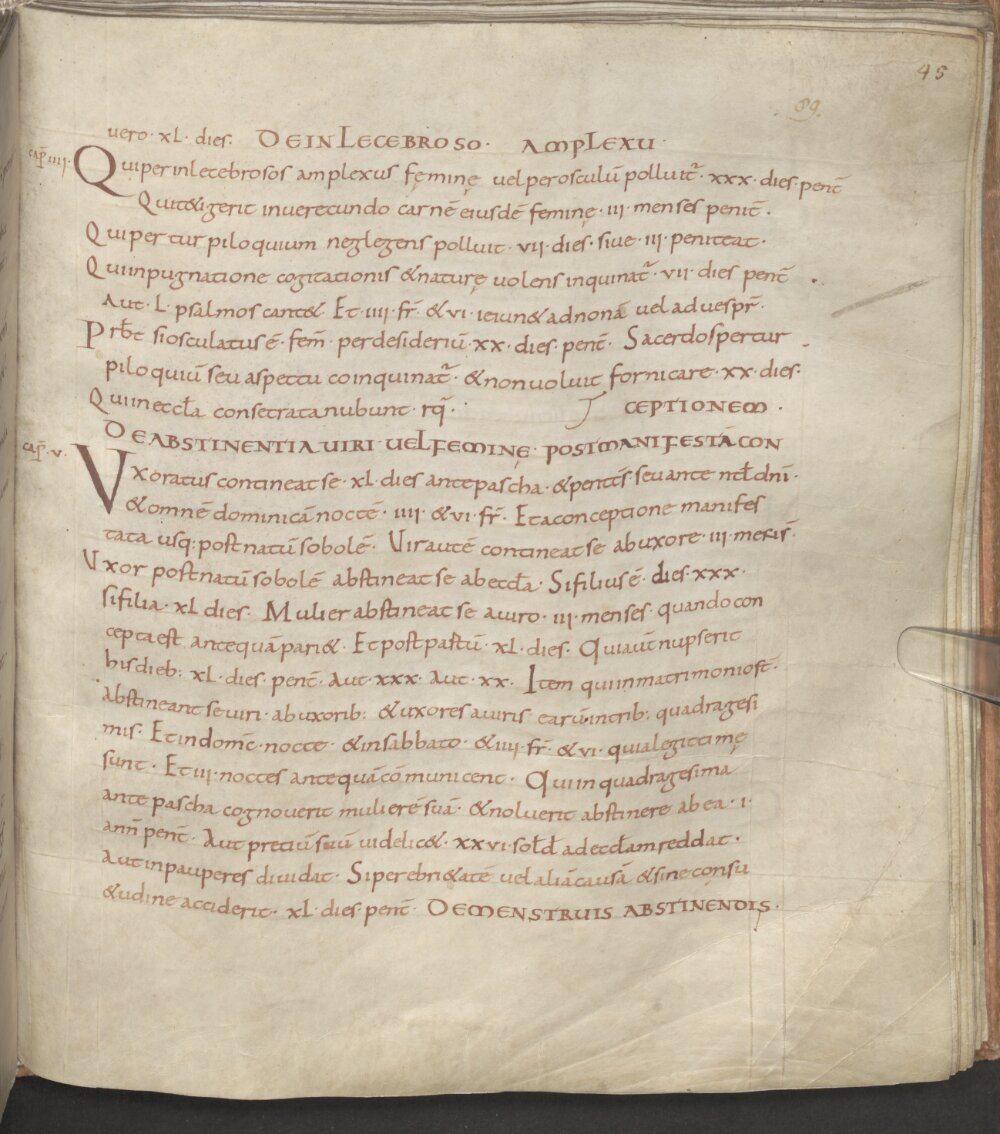 45
89.
uero · xl · dies · DE INLECEBROSO · AMPLEXU ·
cap̄ iiii · Qui per inlecebrosos amplexus fęminę uel per osculū polluit᷑ · xxx · dies · penit̄
Qui tetigerit inuerecundo carnē eiusdē feminę · iii · menses penit̄ ·
Qui per turpiloquium neglegens polluit · vii · dies · siue · iii · peniteat ·
Qui inpugnatione cogitationis & naturę uolens inquinat᷑ · vii · dies penit̄ ·
Aut · L · psalmos cant& · Et · iiii · fr̄ · & vi · ieiun& ad nonā uel ad uesp̄r ·
Pr̄bt̄ si osculatus ē · fem̄ · per desideriū · xx · dies · penit̄ · Sacerdos per tur
piloquiū seu aspectu coinquinat᷑ · & non uoluit fornicare · xx · dies ·
Qui in eccl̄a consecrata nubunt · rq̄ · CEPTIONEM ·
cap̄ · v · DE ABSTINENTIA UIRI UEL FEMINĘ · POST MANIFESTĀ CON
Vxoratus contineat se · xl · dies ante pascha · & pentec̄ seu ante nat̄l dn̄i ·
& omnē dominicā noctē · iiii · & vi · fr̄ · Et a conceptione manifes
tata usq; post natū sobolē · Vir autē contineat se ab uxore · iii · mensis̄ ·
Vxor post natū sobolē abstineat se ab eccl̄a · Si filius ē · dies · xxx ·
si filia · xl dies · Mulier abstineat se a uiro · iii · menses · quando con
cepta est antequā pari& · Et post partū · xl · dies · Qui aut̄ nupserit
his dieb; · xl · dies · penit̄ · Aut · xxx · Aut · xx · Item qui in matrimonio st̄ ·
abstineant se uiri · ab uxorib; & uxores a uiris earū in trib; quadragesi
mis · Et in domc̄ · nocte · & in sabbato · & iiii · fr̄ · & vi · quia legittimę
sunt · Et iii · noctes antequā cōmunicent · Qui in quadragesima
ante pascha cognouerit mulierē suā · & noluerit abstinere ab ea · i ·
ann̄ penit̄ · Aut preciū suū uidelic& · xxvi · sol̄d ad eccl̄am reddat ·
Aut in pauperes diuidat · Si per ebri&atē uel aliā causā & sine consu
&udine acciderit · xl · dies · penit̄ · DE MENSTRUIS ABSTINENDIS ·